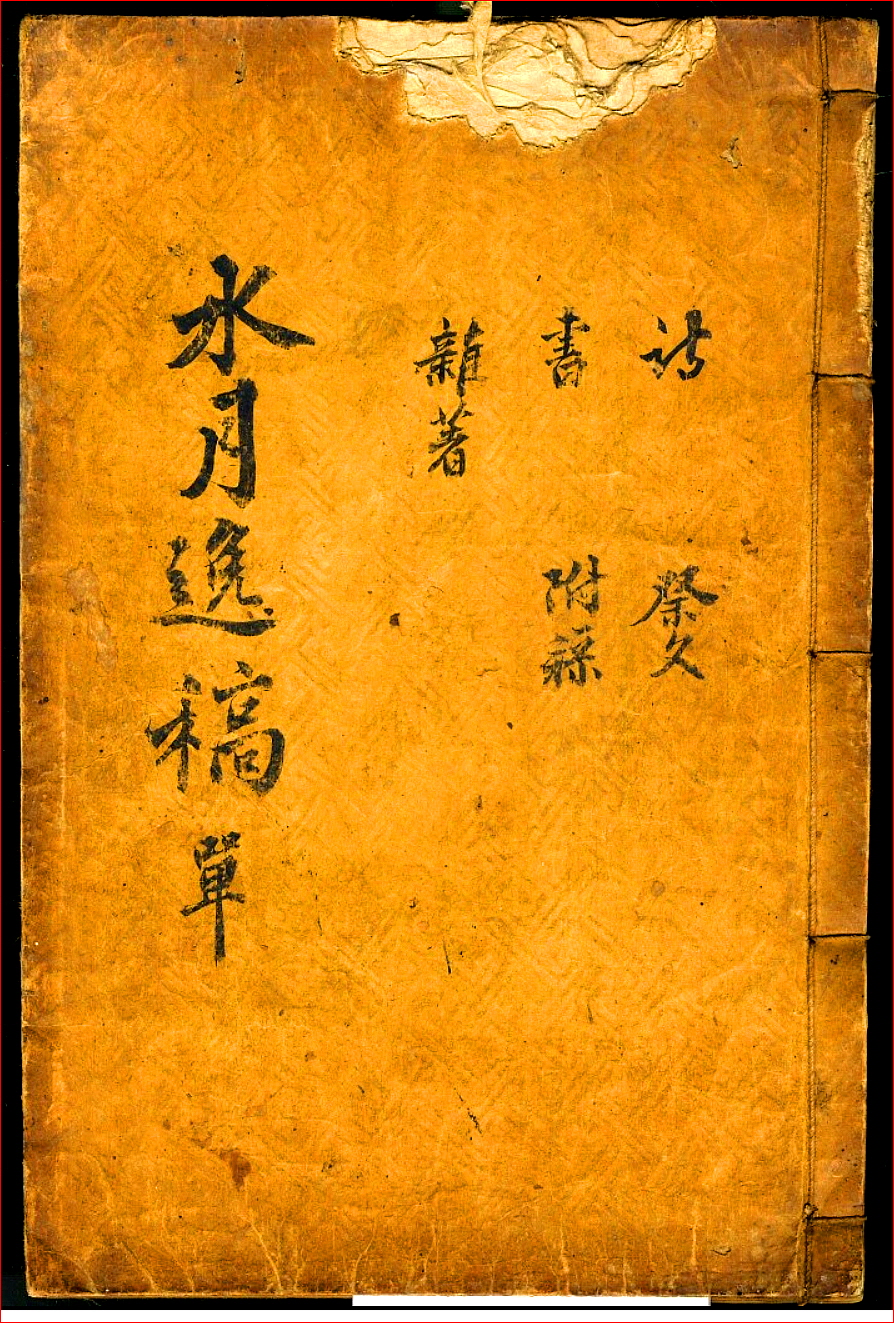 詩 祭文
書 附錄
雜著
水月逸稿 單